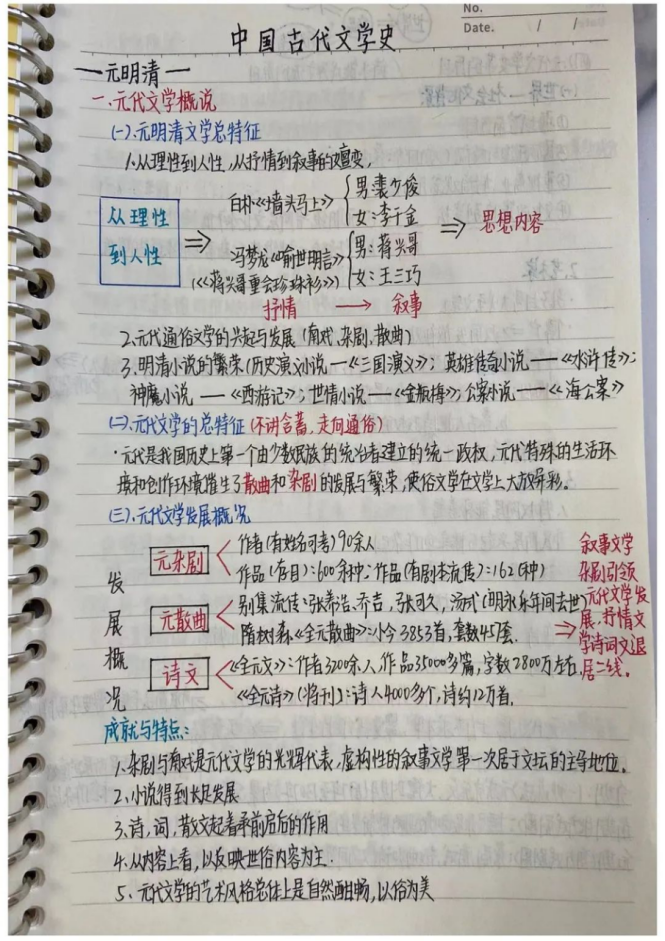 No.
Date. / /
中国古代文学史
一元明清一
一.元代文学概说
(一).元明清文学总特征
1.从理性到人性,从抒情到叙事的嬗变.
从理性到人性
白朴《墙头马上》 男:裴少俊 女:李千金
冯梦龙《喻世明言》(《蒋兴哥重会珍珠衫》) 男:蒋兴哥 女:王三巧
⇒ 思想内容
抒情 → 叙事
2.元代通俗文学的兴起与发展(南戏,杂剧,散曲)
3.明清小说的繁荣(历史演义小说—《三国演义》;英雄传奇小说—《水浒传》;
神魔小说—《西游记》;世情小说—《金瓶梅》;公案小说—《海公案》
(二).元代文学的总特征(不讲含蓄,走向通俗)
·元代是我国历史上第一个由少数民族的统治者建立的统一政权,元代特殊的生活环
境和创作环境催生了散曲和杂剧的发展与繁荣,使俗文学在文学上大放异彩。
(三).元代文学发展概况
发展概况
元杂剧
作者(有姓名可考)90余人
作品(存目):600余种;作品(有剧本流传):162(种)
元散曲
别集流传:张养浩、乔吉,张可久,汤式(明永乐年间去世)
隋树森《全元散曲》:小令3853首,套数457套.
诗文
《全元文》:作者3200余人,作品35000多篇,字数2800万左右.
《全元诗》(将刊):诗人4000多个,诗约12万首.
⇒
叙事文学
杂剧引领
元代文学发
展,抒情文
学诗词文退
居二线。
成就与特点:
1.杂剧与南戏是元代文学的光辉代表,虚构性的叙事文学第一次居于文坛的主导地位.
2.小说得到长足发展
3.诗,词,散文起着承前启后的作用
4.从内容上看,以反映世俗内容为主.
5.元代文学的艺术风格总体上是自然酣畅,以俗为美